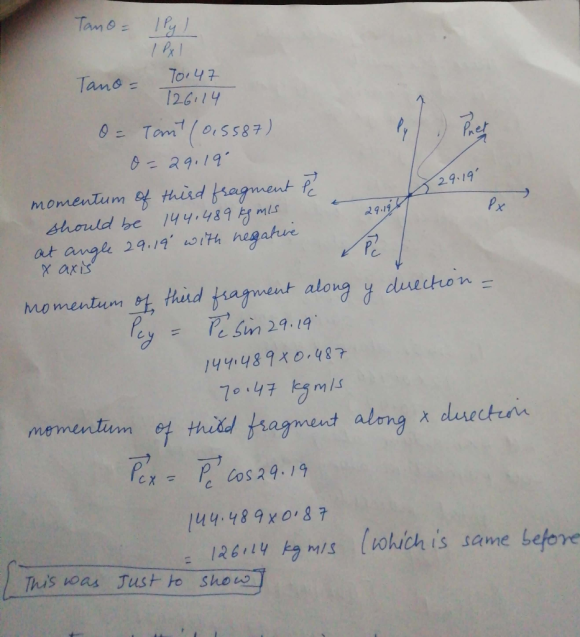 Tanθ = |Py|
|Px|
Tanθ = 70.47
126.14
θ = Tan⁻¹ (0.5587)
θ = 29.19°
Py
→Pnet
29.19°
29.19°
Px
→Pc
momentum of third fragment →Pc
should be 144.489 kg m/s
at angle 29.19° with negative
x axis
momentum of third fragment along y direction =
→Pcy = →Pc Sin 29.19°
144.489 x 0.487
70.47 kg m/s
momentum of third fragment along x direction
→Pcx = →Pc cos 29.19
144.489 x 0.87
= 126.14 kg m/s (which is same before
This was Just to show